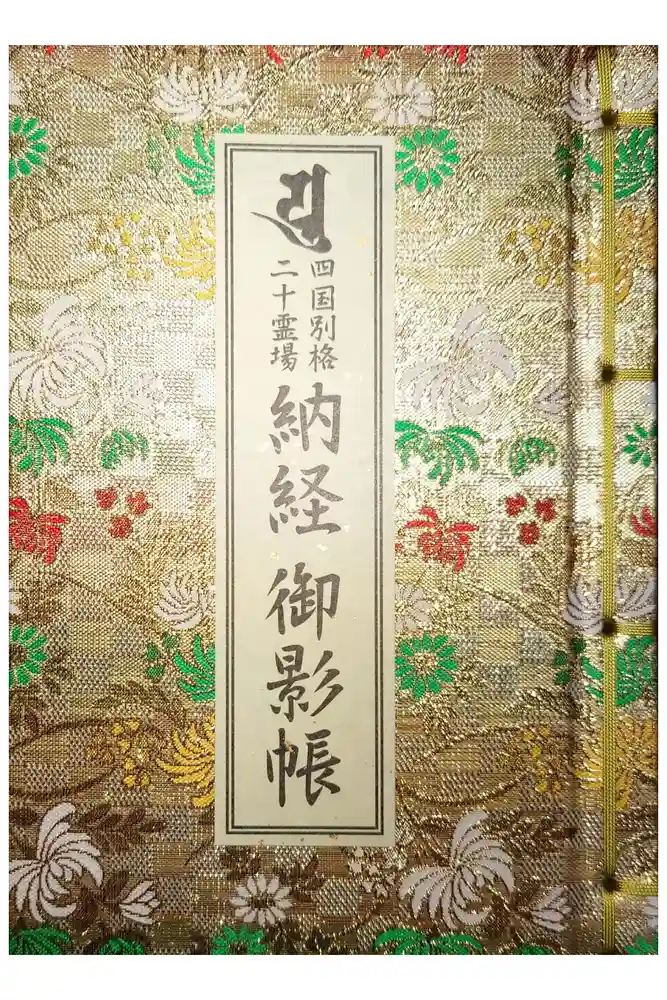 𑖧𑖲
四国別格
二十霊場
納経御影帳